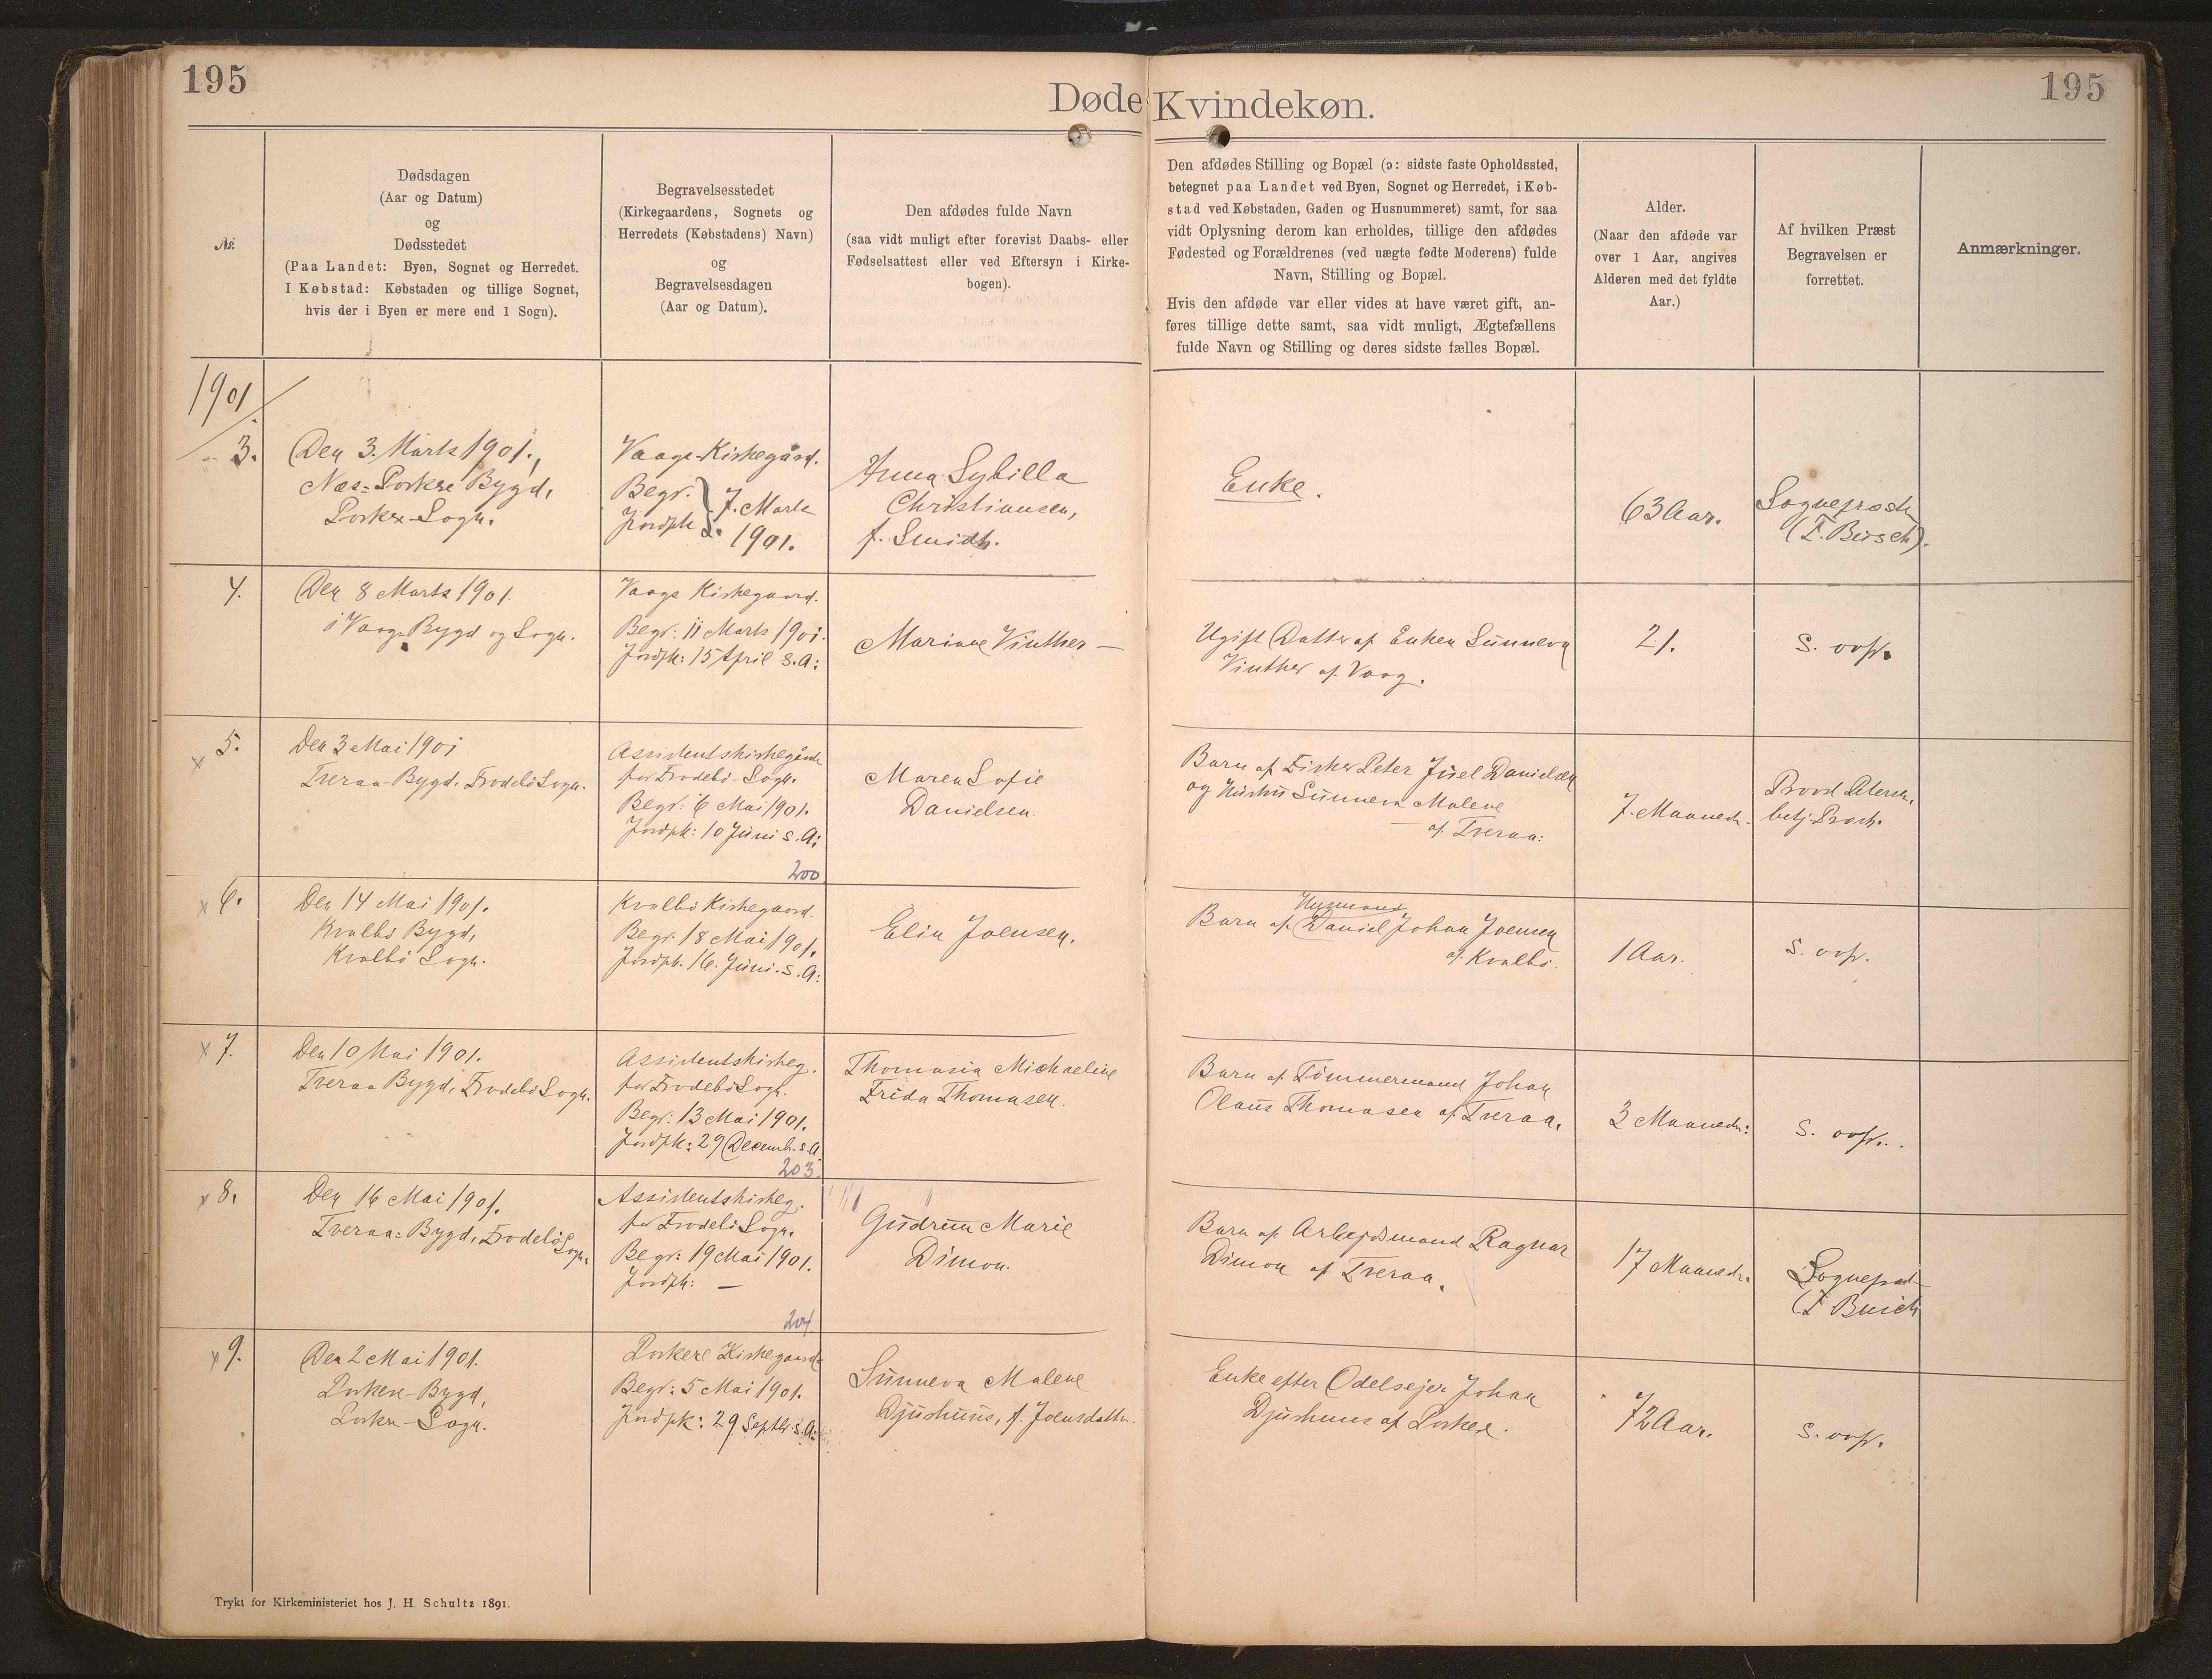 195
195
Døde Kvindekøn.
№.
Dødsdagen
(Aar og Datum)
og
Dødsstedet
(Paa Landet: Byen, Sognet og Herredet.
I Købstad: Købstaden og tillige Sognet,
hvis der i Byen er mere end 1 Sogn).
Begravelsesstedet
(Kirkegaardens, Sognets og
Herredets (Købstadens) Navn)
og
Begravelsesdagen
(Aar og Datum).
Den afdødes fulde Navn
(saa vidt muligt efter forevist Daabs- eller
Fødselsattest eller ved Eftersyn i Kirke-
bogen).
Den afdødes Stilling og Bopæl (ɔ: sidste faste Opholdssted,
betegnet paa Landet ved Byen, Sognet og Herredet, i Køb-
stad ved Købstaden, Gaden og Husnummeret) samt, for saa
vidt Oplysning derom kan erholdes, tillige den afdødes
Fødested og Forældrenes (ved uægte fødte Moderens) fulde
Navn, Stilling og Bopæl.
Hvis den afdøde var eller vides at have været gift, an-
føres tillige dette samt, saa vidt muligt, Ægtefællens
fulde Navn og Stilling og deres sidste fælles Bopæl.
Alder.
(Naar den afdøde var
over 1 Aar, angives
Alderen med det fyldte
Aar.)
Af hvilken Præst
Begravelsen er
forrettet.
Anmærkninger.
1901
3.
Den 3. Marts 1901.,
Næs-Porkere Bygd,
Porkere-Sogn.
Vaags-Kirkegård.
Begr.
Jordpk
7. Marts
1901.
Anna Sybilla
Christiansen,
f. Smidth.
Enke.
63 Aar.
Sognepræsten
(F. Busch).
4.
Den 8 Marts 1901.
i Vaag-Bygd og Sogn.
Vaags Kirkegaard.
Begr: 11 Marts 1901.
Jordpk: 15 April s. A:
Mariane Vinther —
Ugift Datter af Enken Sunneva
Vinther af Vaag.
21.
S. ovfr.
x 5.
Den 3 Mai 1901
Tveraa-Bygd. Frodebø Sogn.
Assistentskirkegården
for Frodebø-Sogn.
Begr: 6 Mai 1901.
Jordpk: 10 Juni s. A:
200
Maren Sofie
Danielsen.
Barn af Fisker Peter Juel Danielsen
og Hustru Sunneva Malene
— af Tveraa:
7. Maaneder.
Provst Petersen.
betj. Præst.
x 6.
Den 14 Mai 1901.
Kvalbø Bygd,
Kvalbø Sogn.
Kvalbø Kirkegaard.
Begr. 18 Mai 1901.
Jordpk. 16. Juni. s. A:
Elin Joensen.
Husmand
Barn af Daniel Johan Joensen
af Kvalbø.
1 Aar.
S. ovfr.
x 7.
Den 10 Mai 1901.
Tveraa Bygd, Frodebø Sogn.
Assistentskirkeg.
for Frodebø Sogn.
Begr: 13 Mai 1901.
Jordpk: 29 Decemb. s. A
203.
Thomasia Michaeline
Frida Thomasen.
Barn af Tømmermand Johan
Olaus Thomasen af Tveraa.
3 Maaneder:
S. ovfr.
x 8.
Den 16 Mai 1901.
Tveraa-Bygd, Frodebø
Sogn.
Assistentskirkeg.
for Frodebø Sogn.
Begr: 19 Mai 1901.
Jordpk: —
204
Gudrun Marie
Dimon.
Barn af Arbejdsmand Ragnar
Dimon af Tveraa.
17 Maaneder.
Sognepræst
(F Busch
x 9.
Den 2 Mai 1901.
Porkere-Bygd,
Porkere-Sogn.
Porkere Kirkegaard-
Begr: 5 Mai 1901.
Jordpk: 29 Septbr. s. A:
Sunneva Malene
Djurhuus, f. Joensdatter.
Enke efter Odelsejer Johan
Djurhuus af Porkere.
72 Aar.
S. ovfr.
Trykt for Kirkeministeriet hos J. H. Schultz 1891.